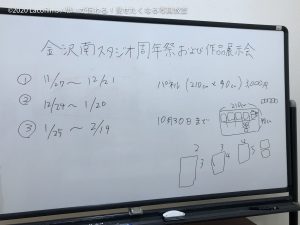 金沢南スタジオ周年祭および作品展示会
① 11/27 〜 12/21
② 12/24 〜 1/20
③ 1/25 〜 2/19
パネル (210cm × 90cm) 3,000円
10月30日まで
210cm
90cm
2
3
3
4
4
5